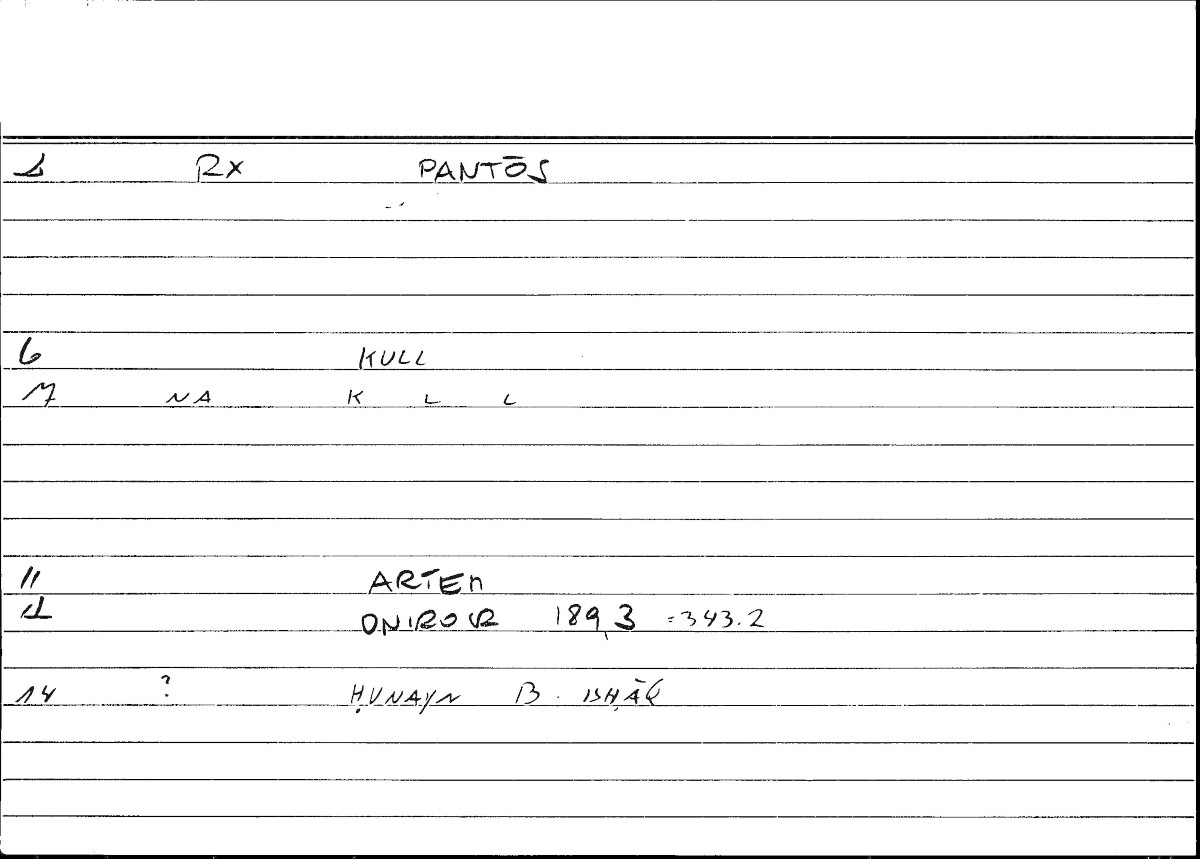 1 RX PANTŌS
6 KULL
7 NA K L L
11 ARTEM
12 ONIROCR 189,3 =343.2
14 ? ḤUNAYN B. ISḤĀQ